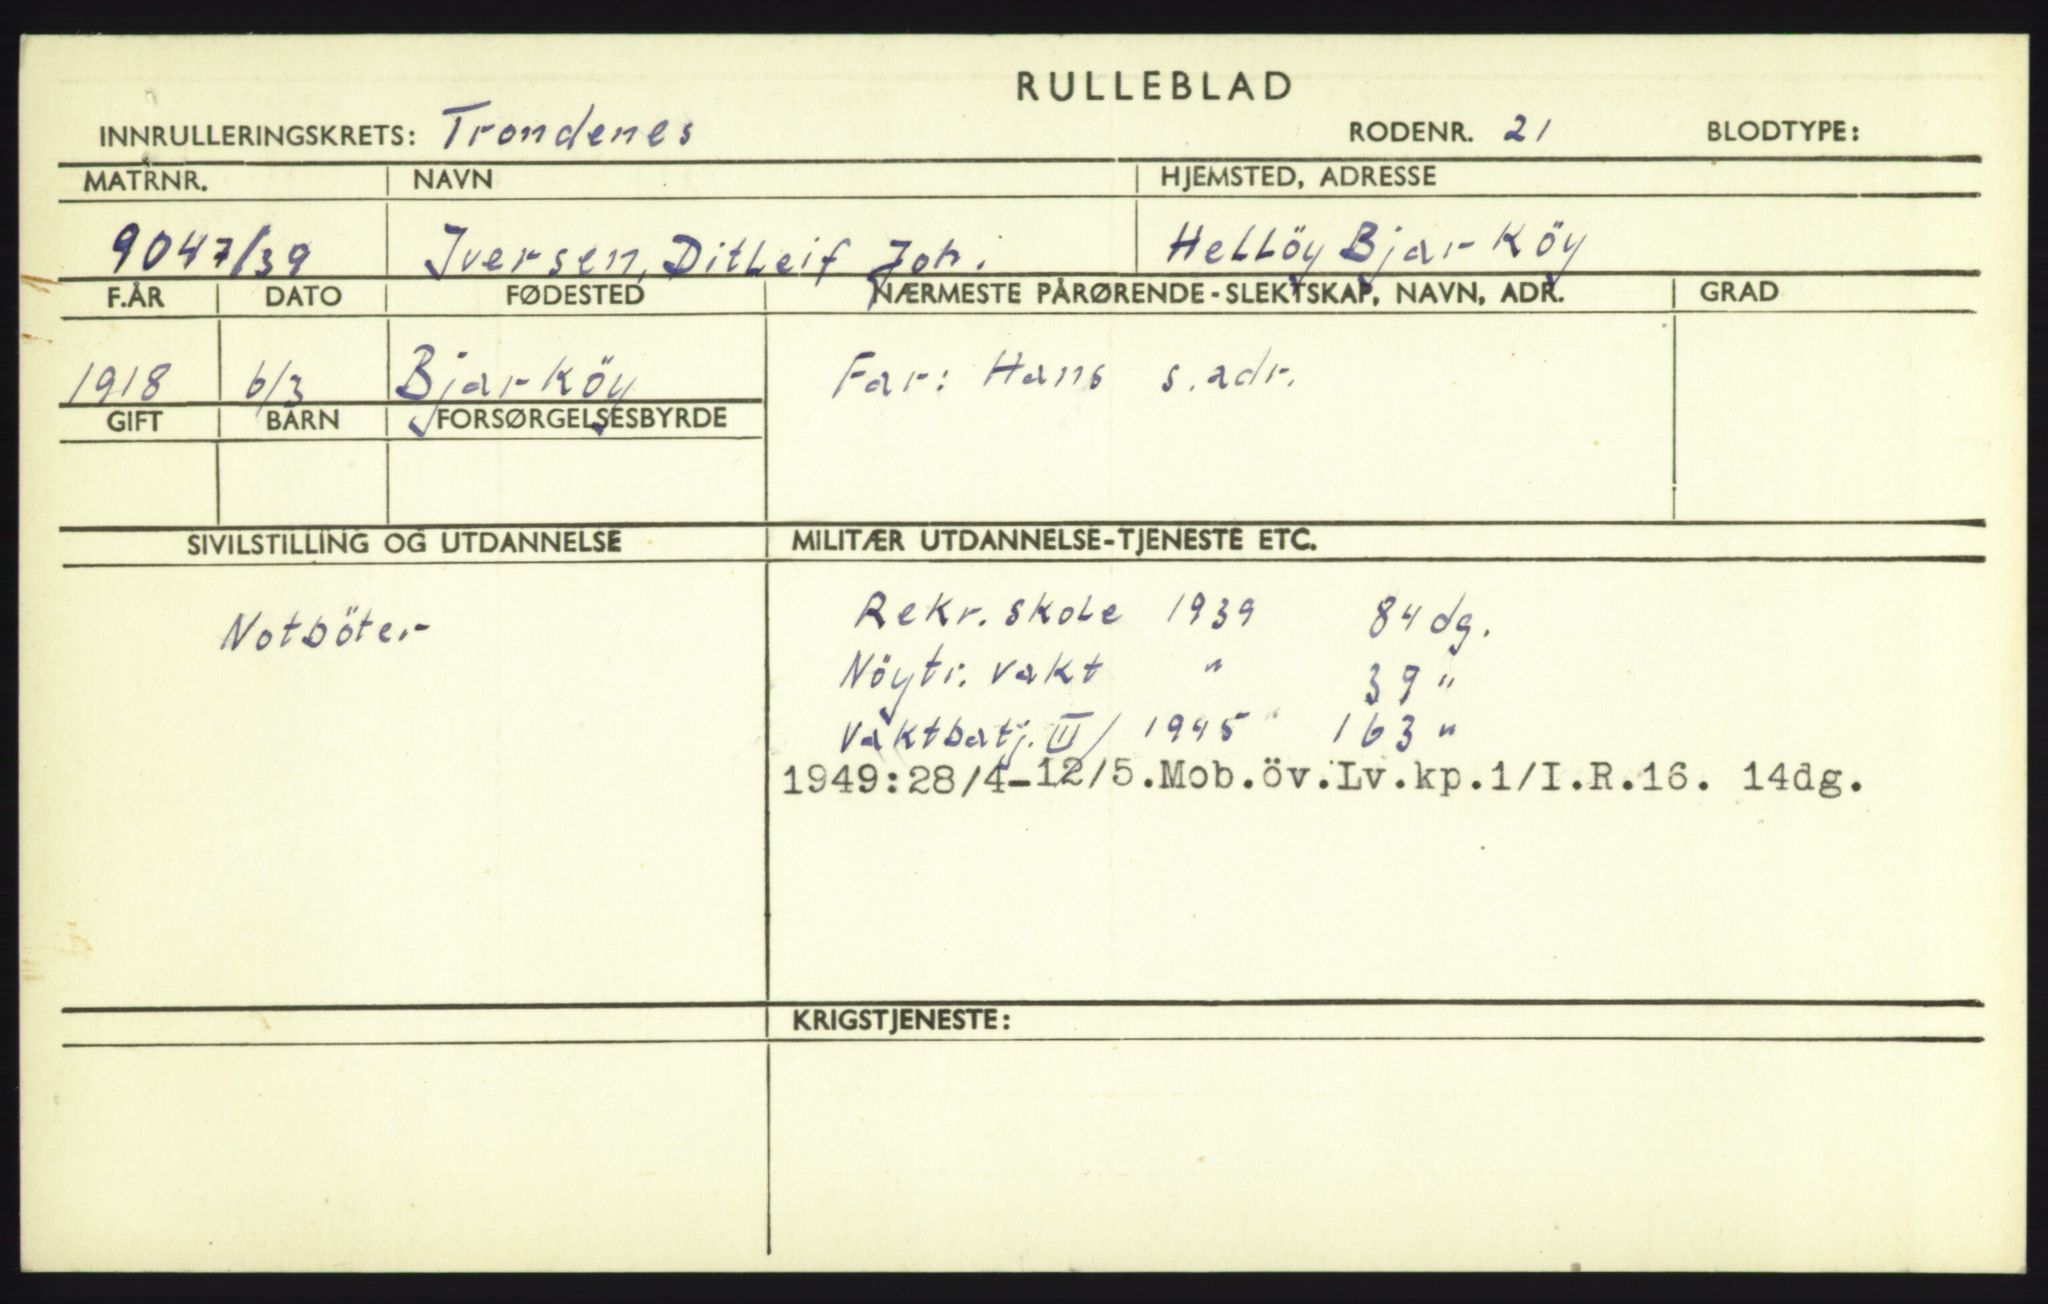 RULLEBLAD
INNRULLERINGSKRETS: Trondenes RODENR. 21 BLODTYPE:
MATRNR. NAVN HJEMSTED, ADRESSE
9047/39 Iversen, Ditleif Joh. Hellöy Bjarköy
F.ÅR DATO FØDESTED NÆRMESTE PÅRØRENDE-SLEKTSKAP, NAVN, ADR. GRAD
1918 6/3 Bjarköy Far: Hans s.adr.
GIFT BARN FORSØRGELSESBYRDE
SIVILSTILLING OG UTDANNELSE MILITÆR UTDANNELSE-TJENESTE ETC.
Notböter Rekr. skole 1939 84 dg.
Nöytr. vakt " 39 "
Vaktbatj. III/ 1945 163 "
1949:28/4-12/5.Mob.öv.Lv.kp.1/I.R.16. 14dg.
KRIGSTJENESTE: